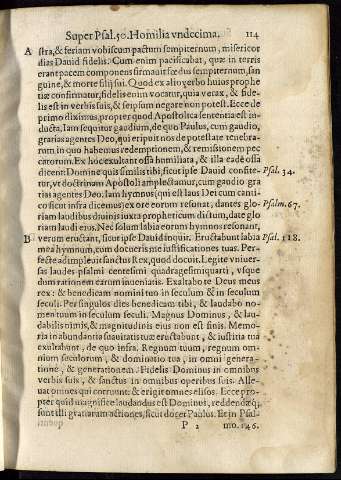 Super Psal. 50. Homilia vndecima. 114
A stra, & feriam vobiscum pactum sempiternum, misericor
dias Dauid fidelis. Cum enim pacificabat, quæ in terris
erant pacem componens firmauit fœdus sempiternum, san
guine, & morte filij sui. Quod ex alio verbo huius prophe
tiæ confirmatur, fidelis enim vocatur, quia verax, & fide-
lis est in verbis suis, & seipsum negare non potest. Ecce de
primo diximus, propter quod Apostolica sententia est in-
ducta. Iam sequitur gaudium, de quo Paulus, cum gaudio,
gratias agentes Deo, qui eripuit nos de potestate tenebra-
rum in quo habemus redemptionem, & remissionem pec
catorum. Ex hoc exultant ossa humiliata, & illa eadē ossa
dicent: Domine quis similis tibi, sicut ipse Dauid confite- Psal. 34.
tur, vt doctrinam Apostoli amplectamur, cum gaudio gra
tias agentes Deo. Iam hymnus (qui est laus Dei cum canti-
co sicut infra dicemus) ex ore eorum resonat, dantes glo- Psalm. 67.
riam laudibus diuinis iuxta propheticum dictum, date glo
riam laudi eius. Nec solum labia eorum hymnos resonant,
B verum eructant, sicut ipse Dauid inquit. Eructabunt labia Psal. 118.
mea hymnum, cum docueris me iustificationes tuas. Per-
fecte adimpleuit sanctus Rex, quod docuit. Legite vniuer-
sas laudes psalmi centesimi quadragesimiquarti, vsque
dum rationem earum inueniatis. Exaltabo te Deus meus
rex: & benedicam nomini tuo in seculum & in seculum
seculi. Per singulos dies benedicam tibi, & laudabo no-
men tuum in seculum seculi. Magnus Dominus, & lau-
dabilis nimis, & magnitudinis eius non est finis. Memo-
ria in abundantia suauitatis tuæ eructabunt, & iustitia tua
exultabunt, de quo infra. Regnum tuum, regnum om-
nium seculorum, & dominatio tua, in omni genera-
tione, & generationem. Fidelis Dominus in omnibus
verbis suis, & sanctus in omnibus operibus suis. Alle-
uat omnes qui corruunt: & erigit omnes elisos. Ecce pro-
pter quid magnifice laudandus est Dominus, reddendæq;
sunt illi gratiarum actiones, sicut docet Paulus. Et in Psal-
P 2 mo. 146.